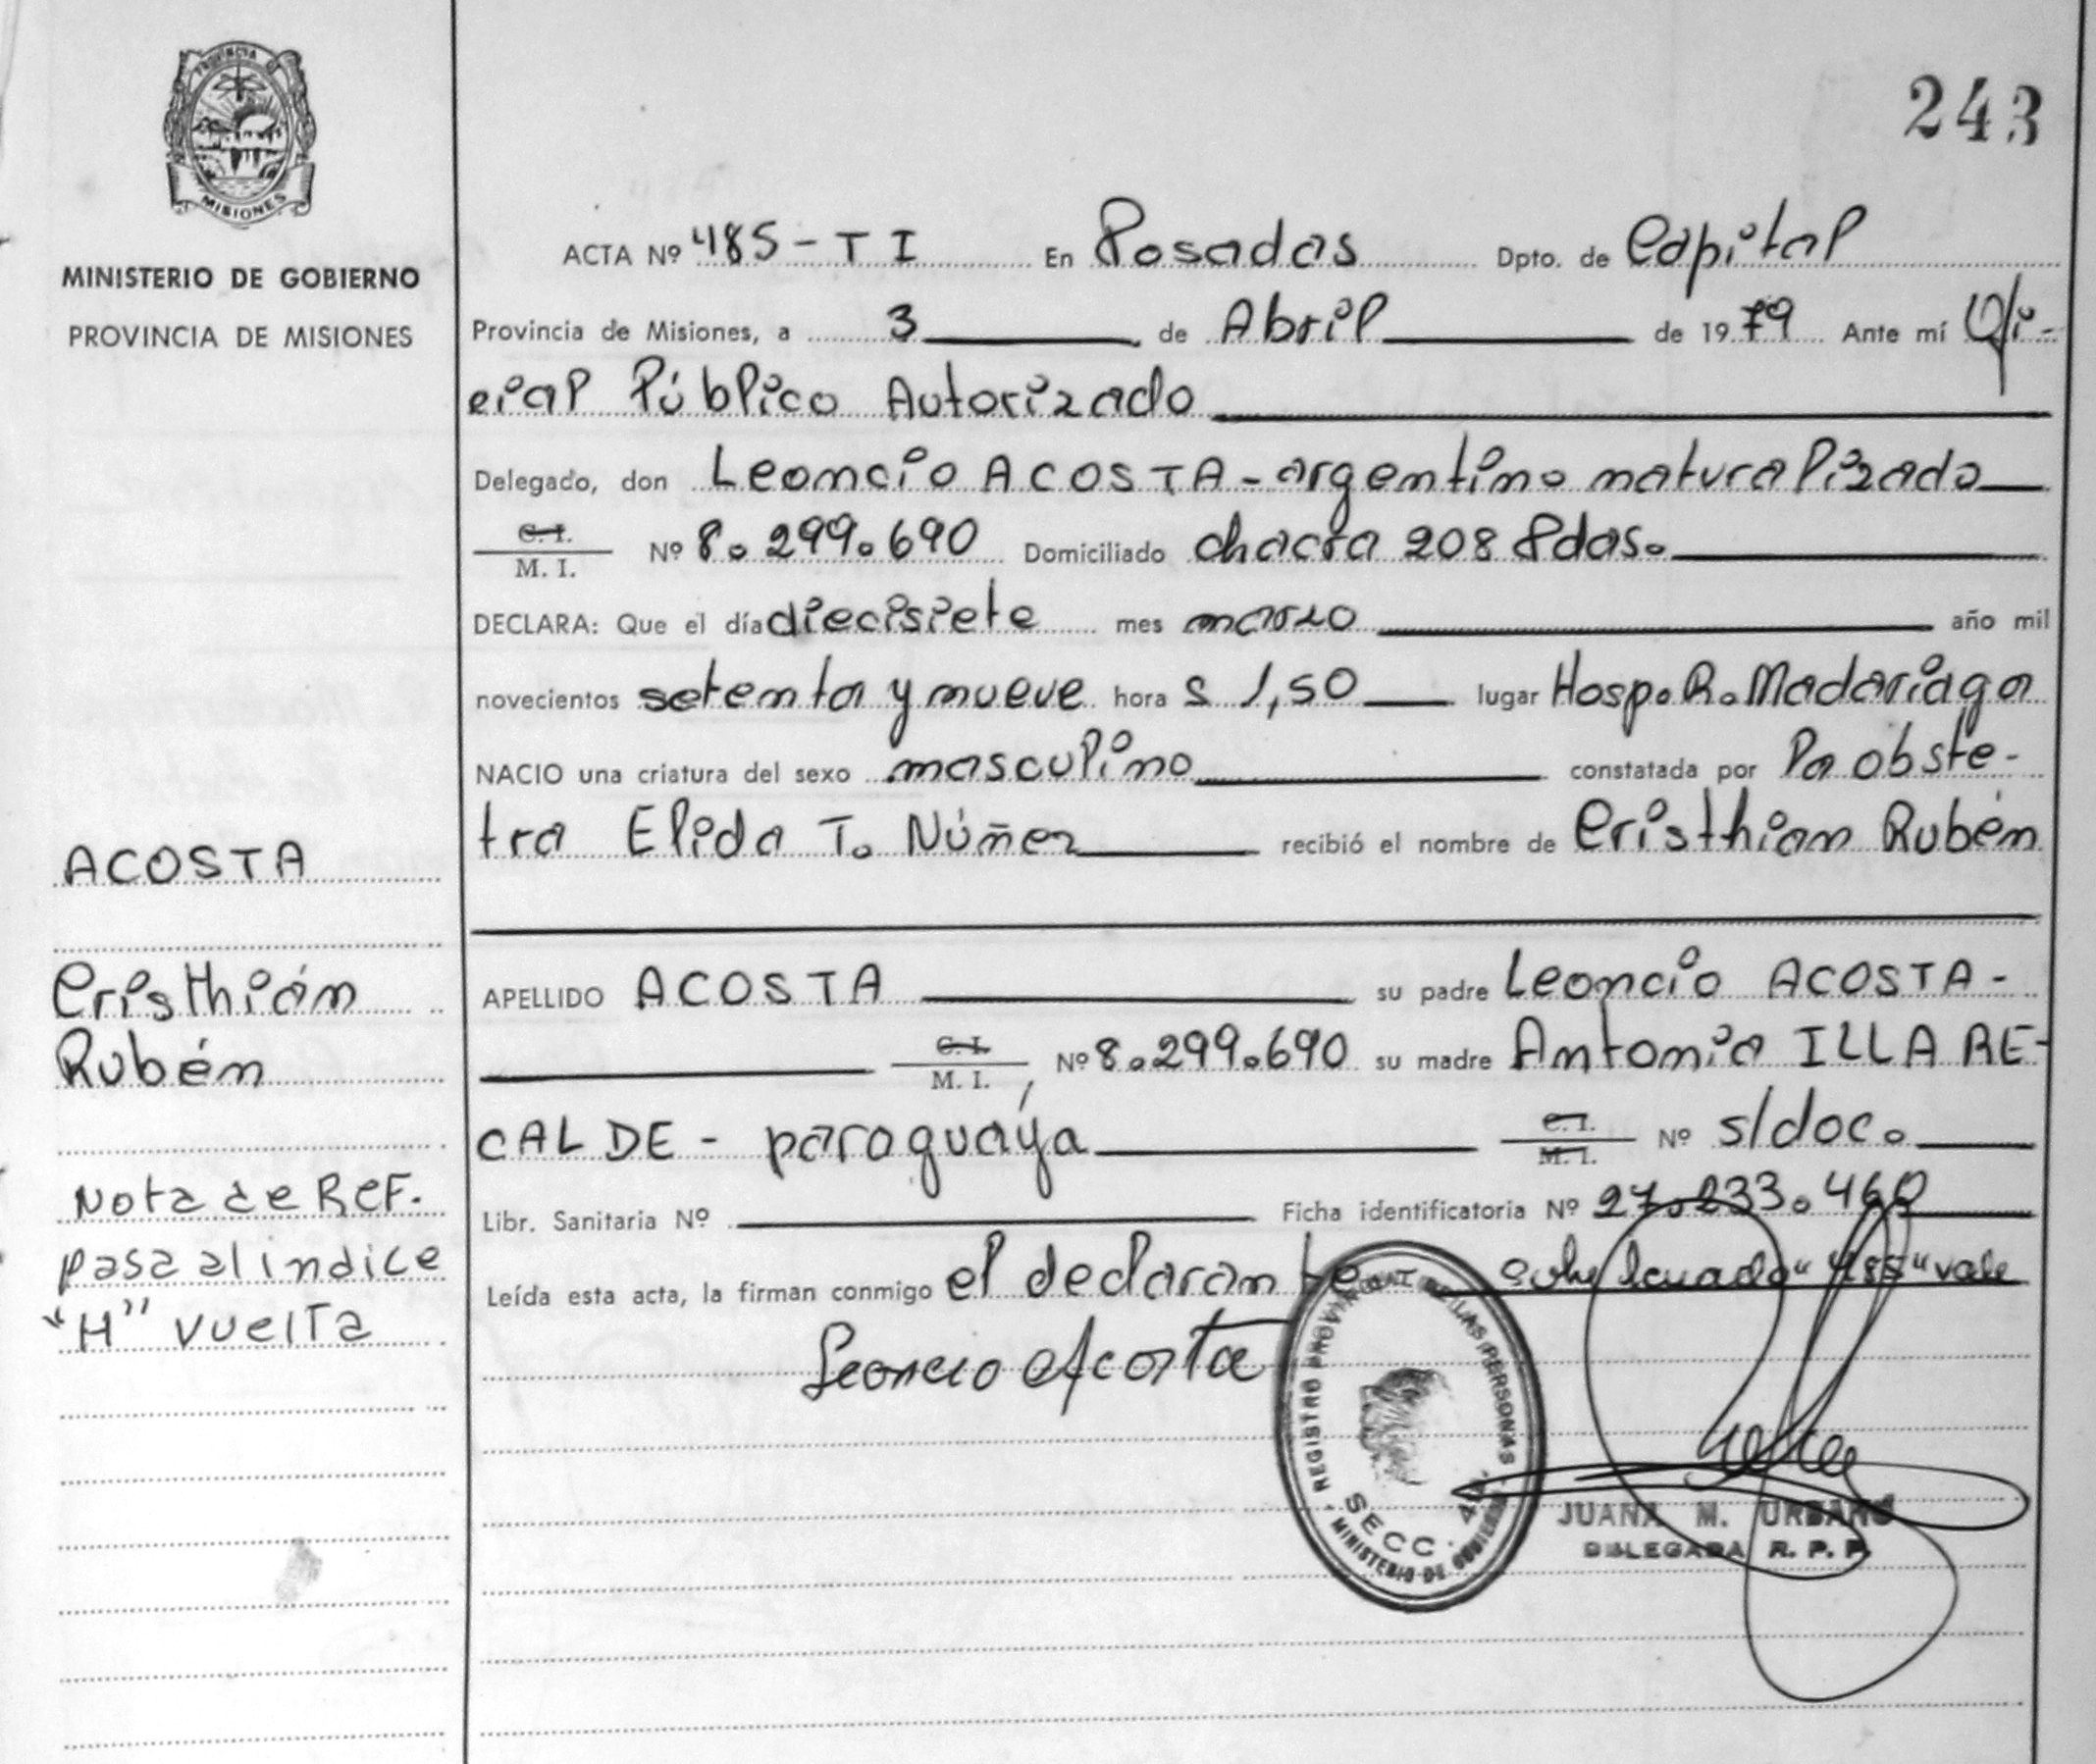 PROVINCIA DE
MISIONES
MINISTERIO DE GOBIERNO
PROVINCIA DE MISIONES
ACOSTA
Cristhián
Rubén
Nota de REF.
pasa al indice
"H" vuelta
243
ACTA Nº 485-T I En Posadas Dpto. de Capital
Provincia de Misiones, a 3 de Abril de 1979 Ante mí Ofi-
cial Público Autorizado
Delegado, don Leoncio ACOSTA - argentino naturalizado
C. I. / M. I. Nº 8.299.690 Domiciliado chacra 208 Pdas.
DECLARA: Que el día diecisiete mes marzo año mil
novecientos setenta y nueve hora s 1,50 lugar Hosp. R. Madariaga
NACIO una criatura del sexo masculino constatada por la obste-
tra Elida T. Núñez recibió el nombre de Cristhian Rubén
APELLIDO ACOSTA su padre Leoncio ACOSTA -
C. I. / M. I. Nº 8.299.690 su madre Antonia ILLA RE-
CALDE - paraguaya C. I. / M. I. Nº s/doc.
Libr. Sanitaria Nº Ficha identificatoria Nº 27.233.460
Leída esta acta, la firman conmigo el declarante sobre "485" vale
Leoncio Acosta
REGISTRO PROVINCIAL DE LAS PERSONAS
SECC. 4a.
MINISTERIO DE GOBIERNO
JUANA M. URBANO
DELEGADA R. P. P.